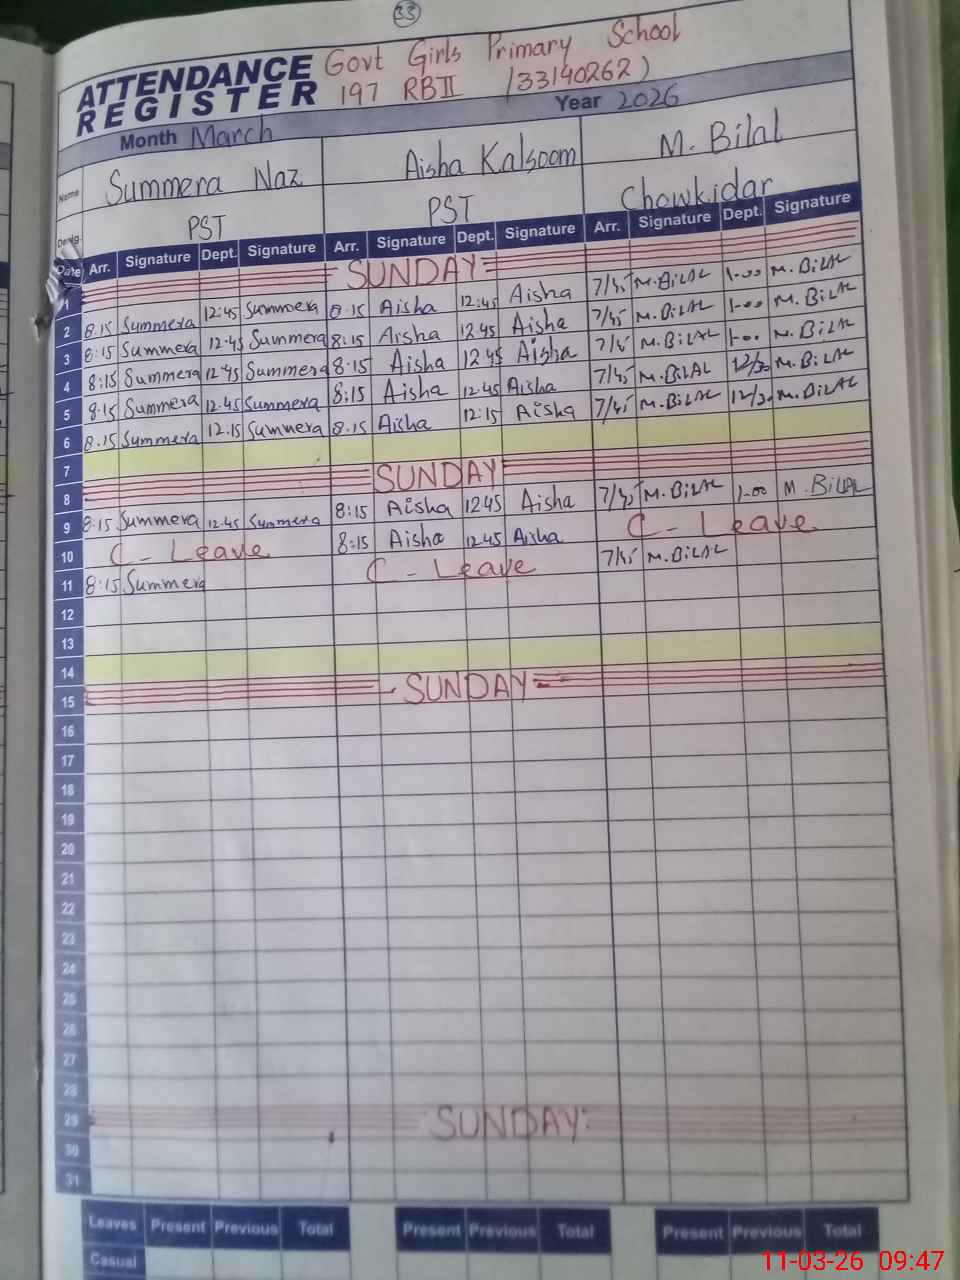 33
ATTENDANCE REGISTER Govt Girls Primary School
197 RB II (33140262)
Month March Year 2026
Name Summera Naz Aisha Kalsoom M. Bilal
Desig. PST PST Chowkidar
Date Arr. Signature Dept. Signature Arr. Signature Dept. Signature Arr. Signature Dept. Signature
1 SUNDAY
2 8:15 Summera 12:45 Summera 8:15 Aisha 12:45 Aisha 7/45 M.BiLAL 1-00 M.BiLAL
3 8:15 Summera 12:45 Summera 8:15 Aisha 12:45 Aisha 7/45 M.BiLAL 1-00 M.BiLAL
4 8:15 Summera 12:45 Summera 8:15 Aisha 12:45 Aisha 7/45 M.BiLAL 1-00 M.BiLAL
5 8:15 Summera 12:45 Summera 8:15 Aisha 12:45 Aisha 7/45 M.BiLAL 12/30 M.BiLAL
6 8:15 Summera 12:15 Summera 8:15 Aisha 12:15 Aisha 7/45 M.BiLAL 12/30 M.BiLAL
7
8 SUNDAY
9 8:15 Summera 12:45 Summera 8:15 Aisha 12:45 Aisha 7/45 M.BiLAL 1-00 M.BiLAL
10 C - Leave 8:15 Aisha 12:45 Aisha C - Leave
11 8:15 Summera C - Leave 7/45 M.BiLAL
12
13
14
15 SUNDAY
16
17
18
19
20
21
22
23
24
25
26
27
28
29 SUNDAY
30
31
Leaves Present Previous Total Present Previous Total Present Previous Total
Casual
11-03-26 09:47